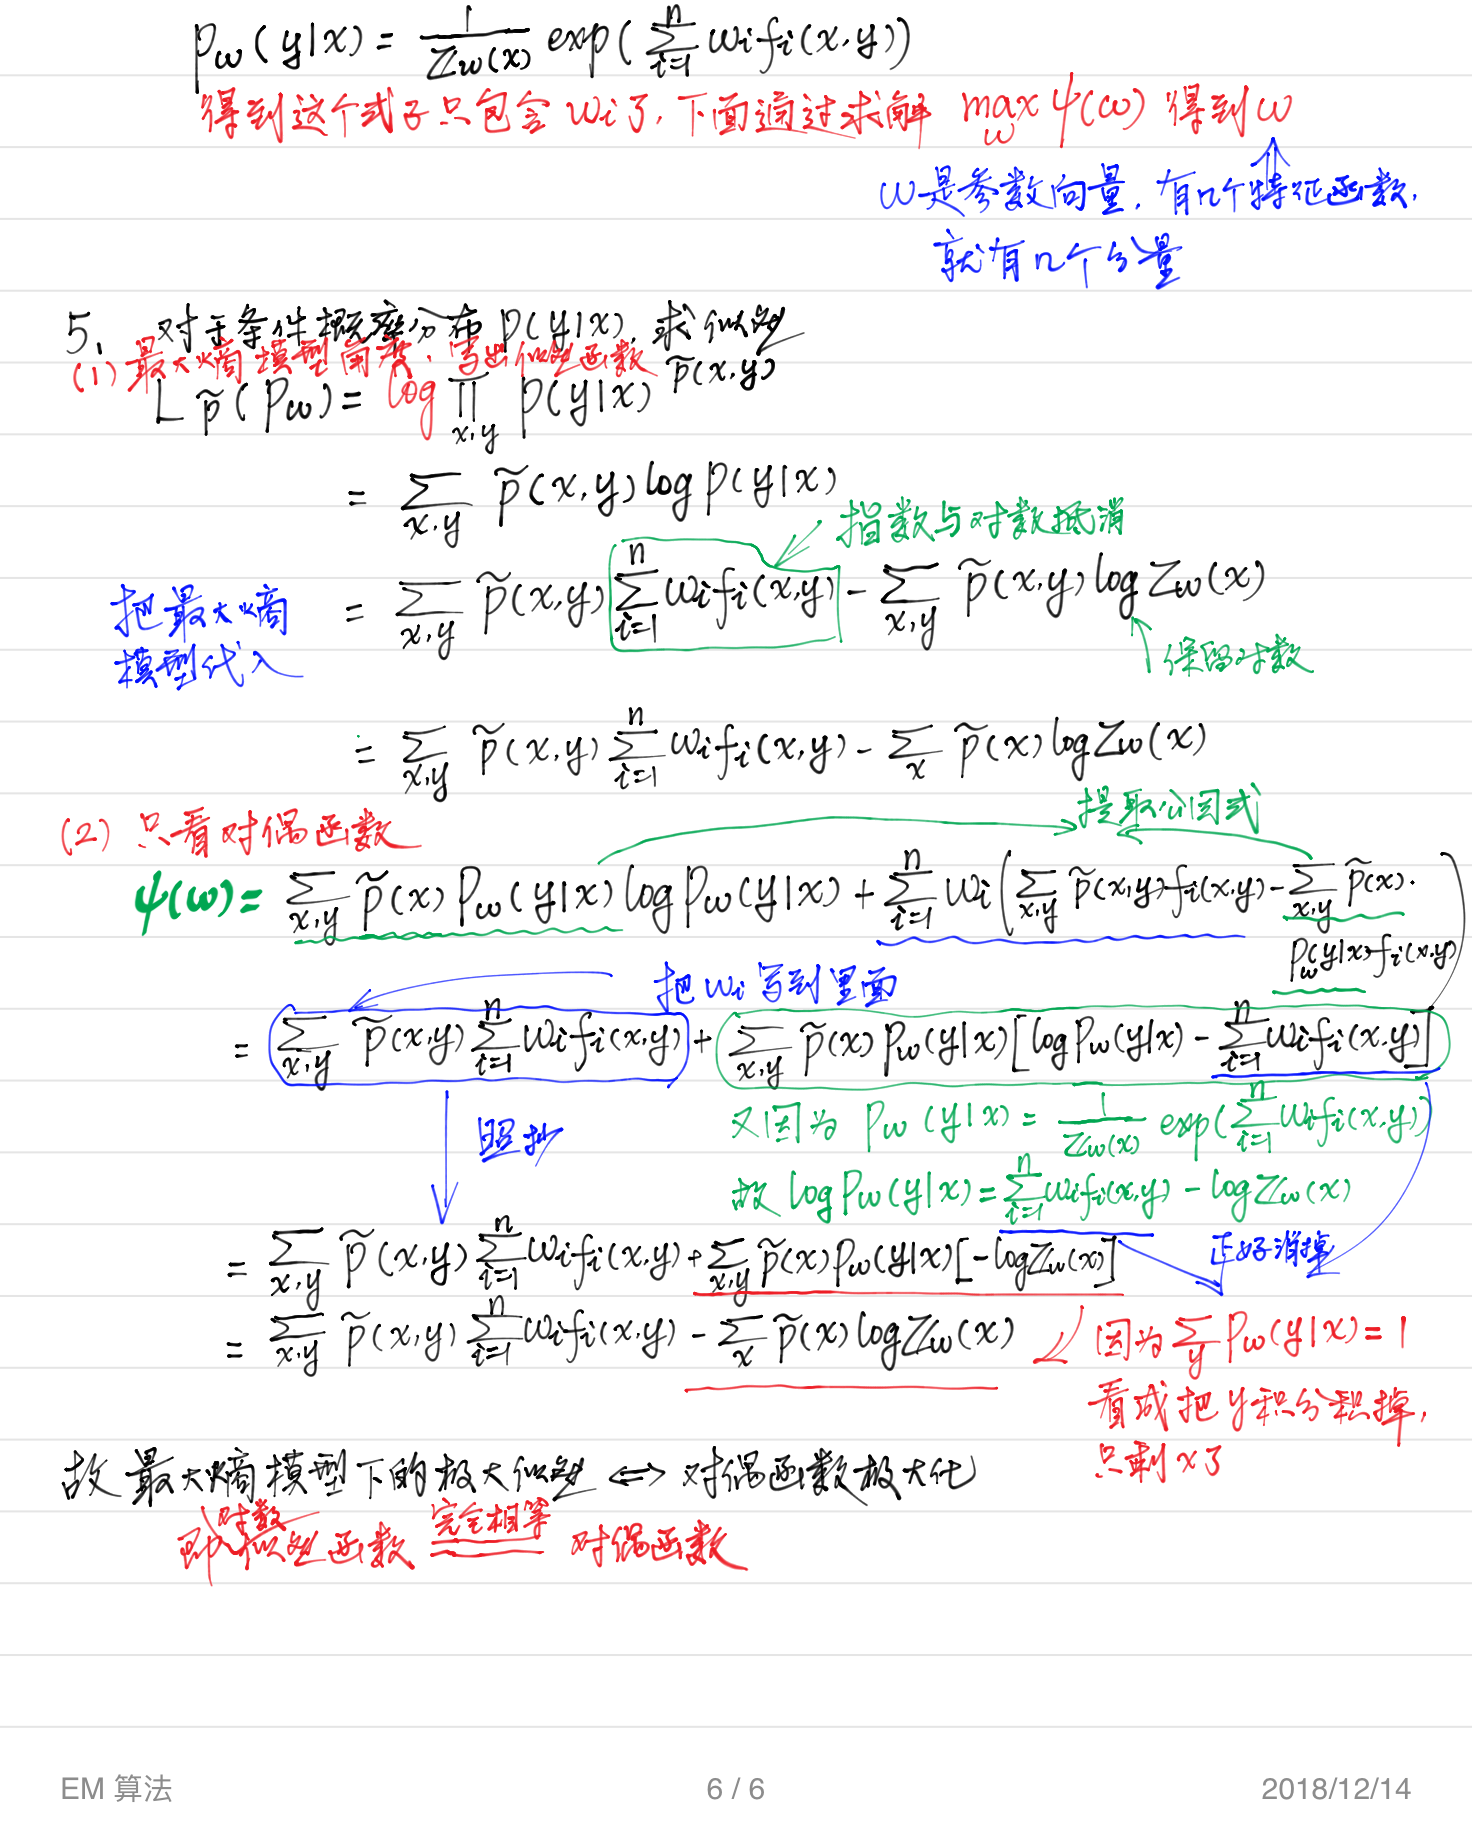 p_w(y|x) = 1/Z_w(x) exp(∑_{i=1}^{n} w_i f_i(x,y))
得到这个式子只包含 w_i 了, 下面通过求解 max_w ψ(w) 得到 w
w是参数向量, 有几个特征函数,
就有几个分量
5、对于条件概率分布 p(y|x), 求似然
(1) 最大熵模型角度, 写出似然函数
L_p̃(P_w) = log ∏_{x,y} p(y|x)^{p̃(x,y)}
= ∑_{x,y} p̃(x,y) log p(y|x)
指数与对数抵消
把最大熵
模型代入
= ∑_{x,y} p̃(x,y) ∑_{i=1}^{n} w_i f_i(x,y) − ∑_{x,y} p̃(x,y) log Z_w(x)
保留对数
= ∑_{x,y} p̃(x,y) ∑_{i=1}^{n} w_i f_i(x,y) − ∑_x p̃(x) log Z_w(x)
(2) 只看对偶函数
提取公因式
ψ(w) = ∑_{x,y} p̃(x) P_w(y|x) log P_w(y|x) + ∑_{i=1}^{n} w_i (∑_{x,y} p̃(x,y) f_i(x,y) − ∑_{x,y} p̃(x)·
P_w(y|x) f_i(x,y))
把 w_i 写到里面
= ∑_{x,y} p̃(x,y) ∑_{i=1}^{n} w_i f_i(x,y) + ∑_{x,y} p̃(x) P_w(y|x) [log P_w(y|x) − ∑_{i=1}^{n} w_i f_i(x,y)]
照抄
又因为 P_w(y|x) = 1/Z_w(x) exp(∑_{i=1}^{n} w_i f_i(x,y))
故 log P_w(y|x) = ∑_{i=1}^{n} w_i f_i(x,y) − log Z_w(x)
= ∑_{x,y} p̃(x,y) ∑_{i=1}^{n} w_i f_i(x,y) + ∑_{x,y} p̃(x) P_w(y|x) [−log Z_w(x)]
正好消掉
= ∑_{x,y} p̃(x,y) ∑_{i=1}^{n} w_i f_i(x,y) − ∑_x p̃(x) log Z_w(x)
因为 ∑_y P_w(y|x) = 1
看成把 y 积分积掉,
只剩 x 了
故最大熵模型下的极大似然 ⟺ 对偶函数极大化
即对数似然函数 完全相等 对偶函数
EM 算法
6 / 6
2018/12/14